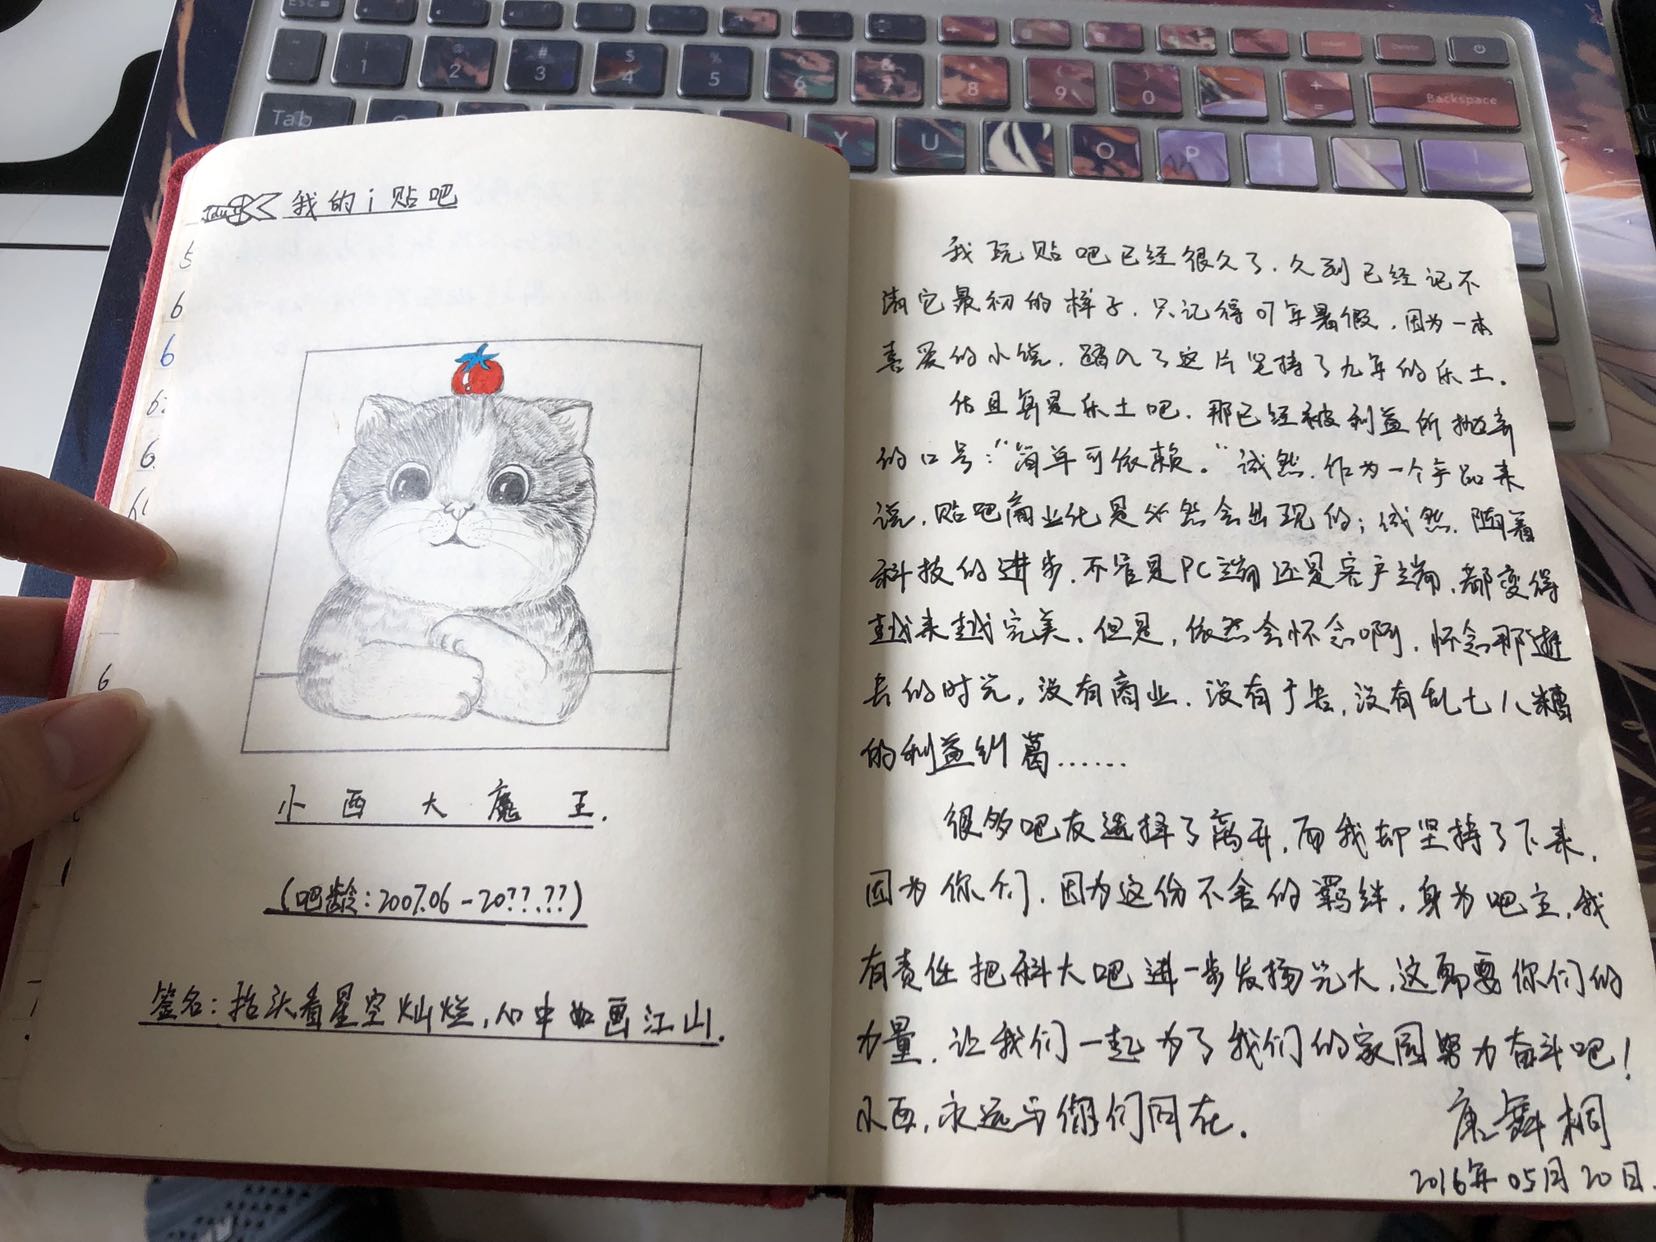 Esc
1
@
2
#
3
$
4
%
5
6
7
8
9
0
Backspace
Tab
Y
U
O
P
我的i贴吧
5
6
6
6
6
6
小西大魔王.
(吧龄:2007.06-20??.??)
签名:抬头看星空灿烂,心中如画江山.
我玩贴吧已经很久了.久到已经记不
清它最初的样子.只记得07年暑假,因为一本
喜爱的小说.踏入了这片坚持了九年的乐土.
估且算是乐土吧.那已经被利益所抛弃
的口号:“简单可依赖.”诚然.作为一个产品来
说.贴吧商业化是必然会出现的;诚然.随着
科技的进步.不管是PC端还是客户端,都变得
越来越完美.但是,依然会怀念啊,怀念那逝
去的时光,没有商业.没有广告,没有乱七八糟
的利益纠葛......
很多吧友选择了离开.而我却坚持了下来,
因为你们.因为这份不舍的羁绊.身为吧主,我
有责任把科大吧进一步发扬光大,这需要你们的
力量.让我们一起为了我们的家园努力奋斗吧!
小西,永远与你们同在.
唐舞桐
2016年05月20日.